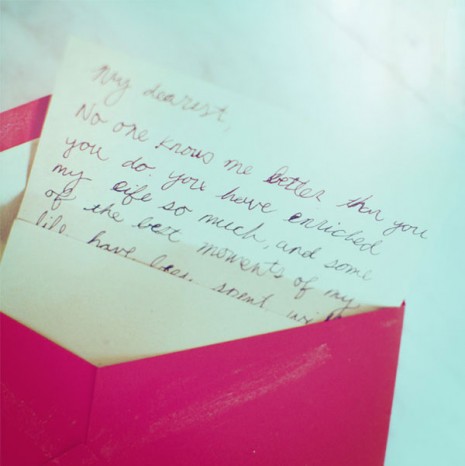 My dearest,
No one knows me better than you
you do. you have enriched
my life so much, and some
of the best moments of my
life have been spent with